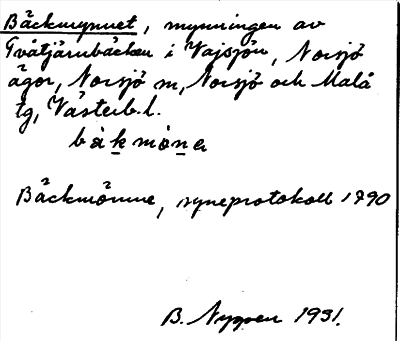 Bäckmynnet, mynningen av
Tvåtjärnbäcken i Vajsjön, Norsjö
ägor, Norsjö sn, Norsjö och Malå
tg, Västerb. l.
bàkmònɐ
Bäckmönne, syneprotokoll 1790
B. Nygren 1931.